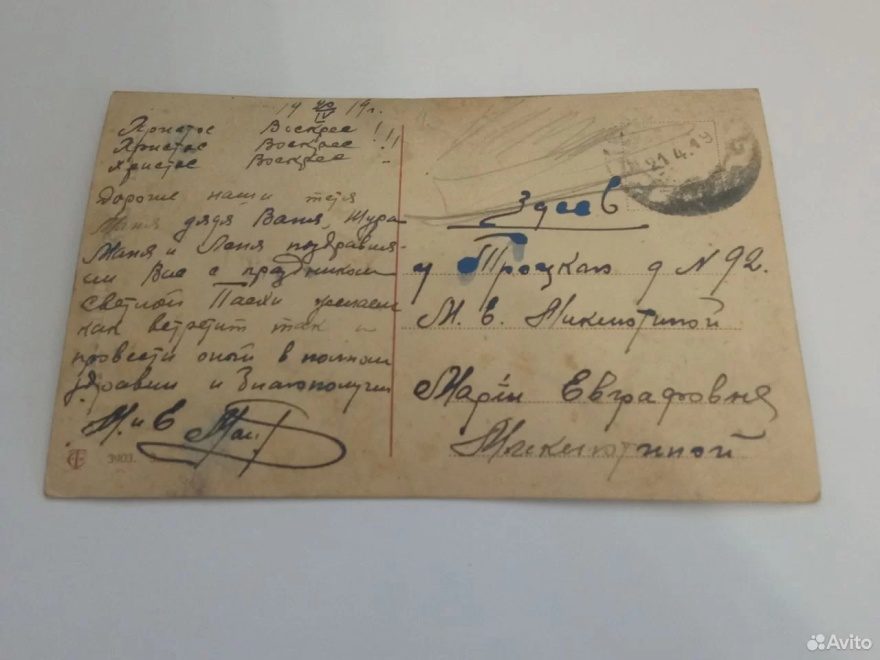 19 20/IV 19 г.
Христос Воскресе!
Христос Воскресе!!
Христос Воскресе
Дорогие наши тетя
Маня дядя Ваня, Шура
Маня и Леня поздравля-
ем Вас с праздником
Светлой Пасхи желаем
как встретит так и
провести оный в полном
здравии и благополучии
М. и Е
3903.
21.4.19
Здесь
у Троцкая д N 92.
М. Е. Миклютиной
Марiи Евграфовня
Миклютиной
Avito